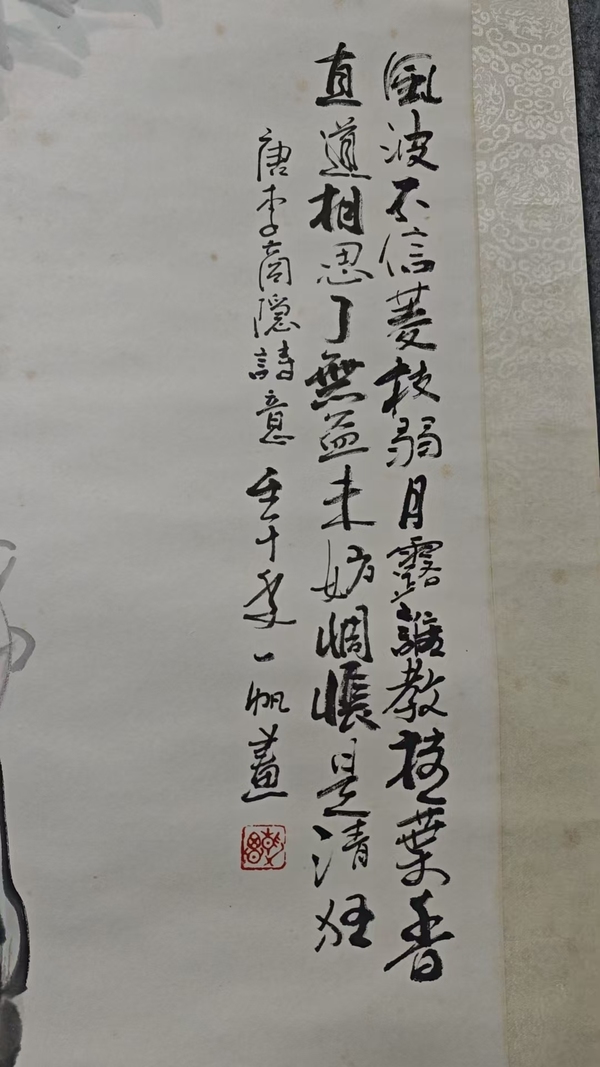 風波不信菱枝弱月露誰教桂葉香
直道相思了無益未妨惆悵是清狂
唐李商隐詩意 壬午夏一帆畫